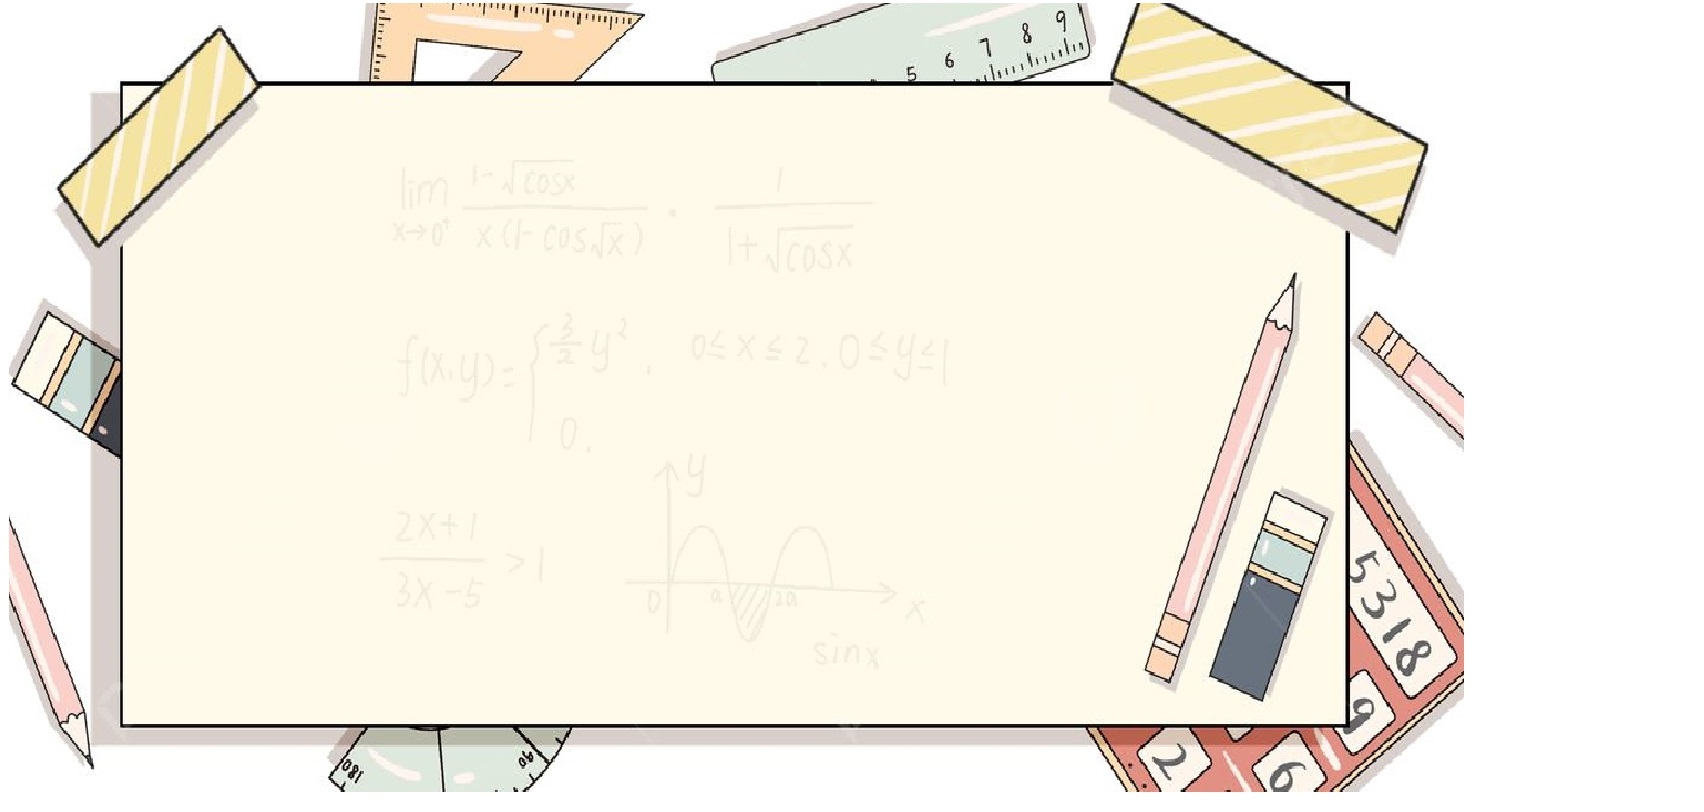 5 6 7 8 9
lim x→0⁺ (1-√cosx)/(x(1-cos√x)) · 1/(1+√cosx)
f(x,y)={ 3/2 y², 0≤x≤2.0≤y≤1
0.
(2x+1)/(3x-5) >1
y
0 a 2a x
sinx
5318
9
2 6
180 90